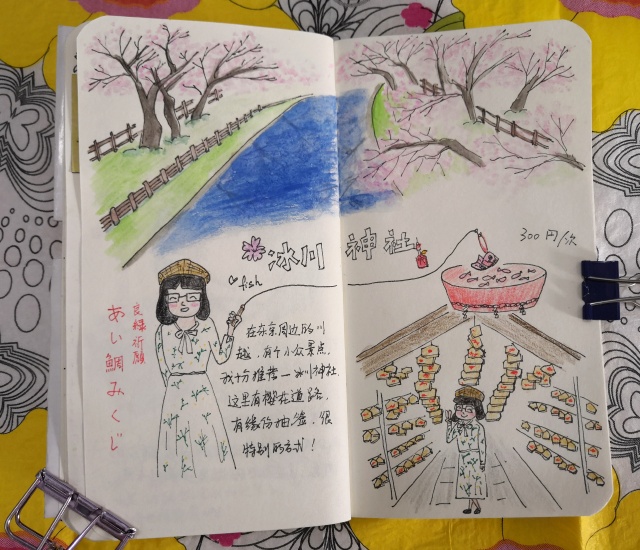 冰川 神社
300円/次
♡fish
良縁祈願
あい鯛みくじ
在东京周边的川
越,有个小众景点,
我十分推荐—冰川神社,
这里有樱花道路,
有缘份抽签,很
特别的方式!